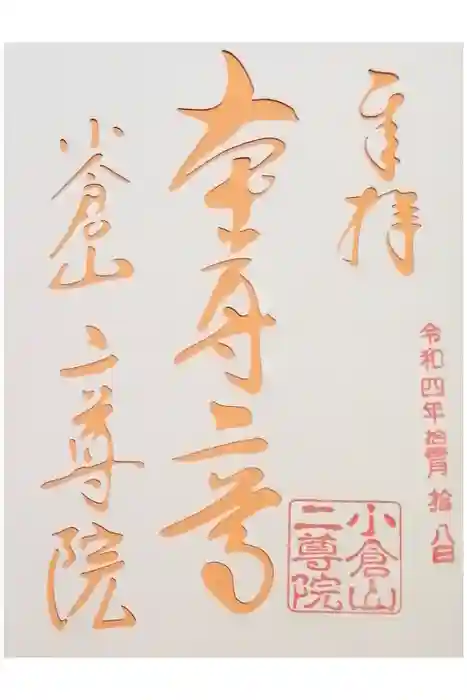 奉拝
令和四年拾月 拾八日
本尊二尊
小倉山 二尊院
小倉山
二尊院